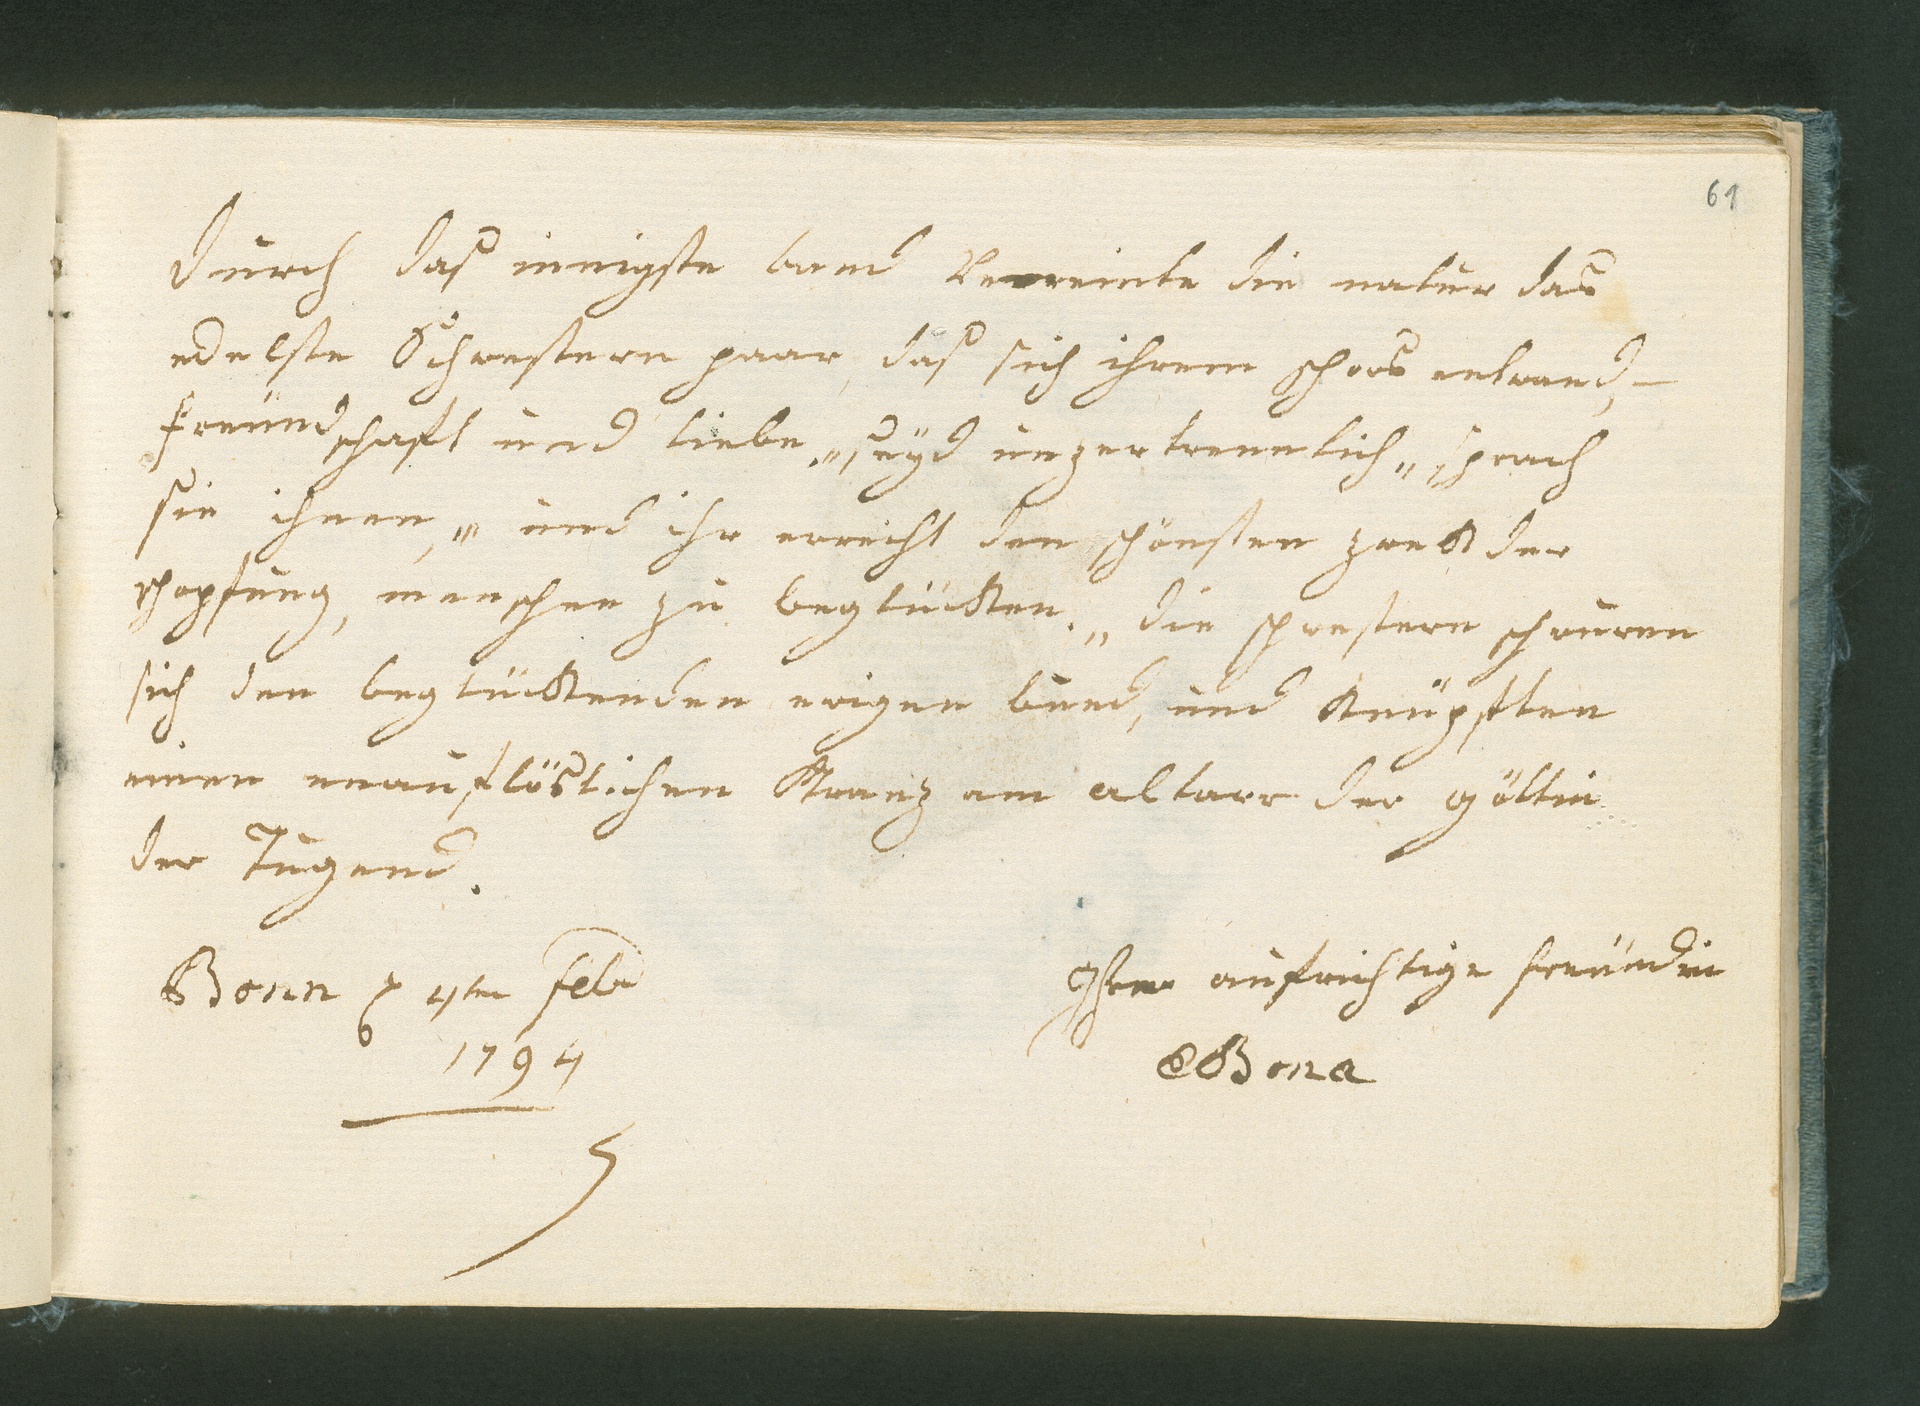 61
Durch das innigste band Vereinte die natur das
edelste Schwestern paar, das sich ihrem schoos entwand, –
freündschaft und liebe „ seÿd unzertrennlich „ sprach
sie ihnen, „ und ihr erreicht den schönsten zwek der
schopfung, menschen zu beglükken. „ die schwestern schwuren
sich den beglükkenden ewigen bund, und knüpften
einen unauflöslichen Kranz am altarr der göttin
der Tugend.
Bonn 4ten feb
1794
Ihre aufrichtige freündin